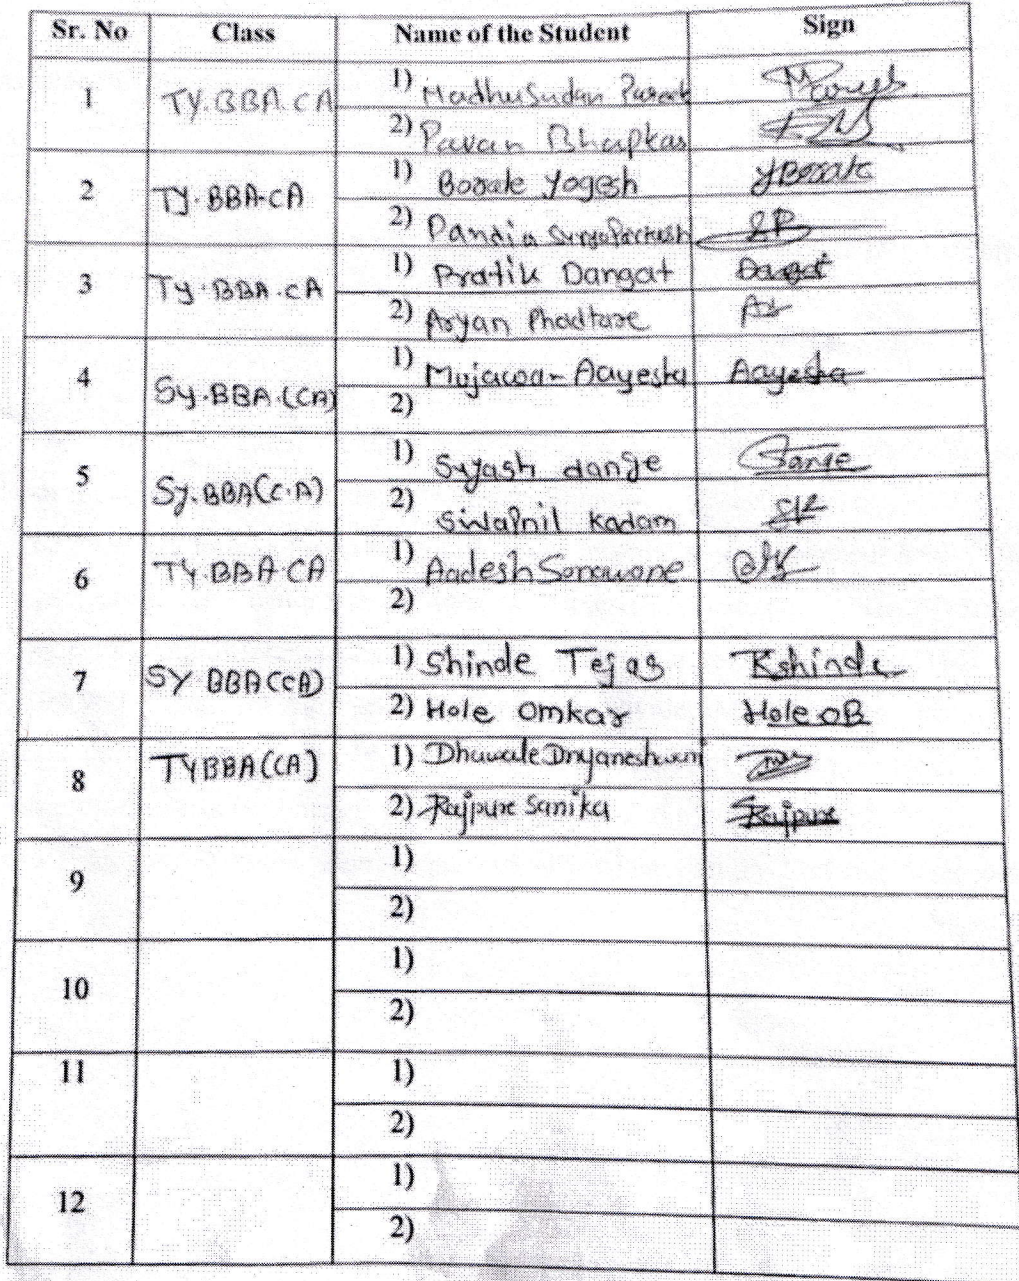 Sr. No Class Name of the Student Sign
1 TY.BBA.CA 1) Madhusudan
2) Pavan Bhapkar
2 TY.BBA-CA 1) Borale Yogesh YBorale
2) Pandia SuryaPrakash SP
3 TY.BBA.CA 1) Pratik Dangat Dangat
2) Aryan Phadtare
4 Sy.BBA.(CA) 1) Mujawar Aayesha Aayesha
2)
5 Sy.BBA(C.A) 1) Suyash dange
2) Swapnil kadam SK
6 TY.BBA.CA 1) Aadesh Sonawane
2)
7 SY BBA(CA) 1) Shinde Tejas Tshinde
2) Hole Omkar Hole OB
8 TYBBA(CA) 1) Dhuwale Dnyaneshwari
2) Rajpure Sanika Rajpure
9 1)
2)
10 1)
2)
11 1)
2)
12 1)
2)